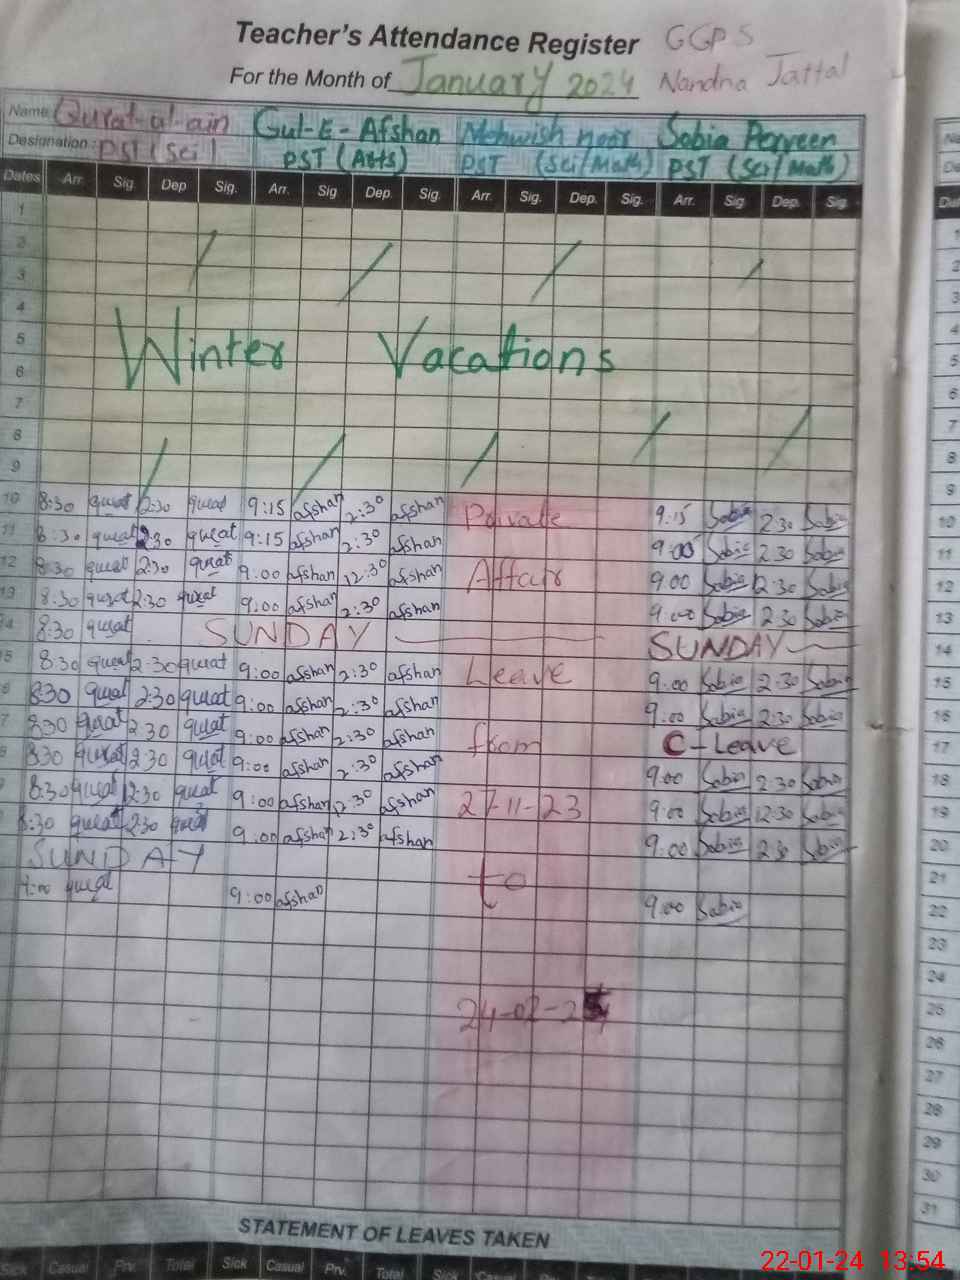 Teacher's Attendance Register GGPS
For the Month of January 2024 Nandna Jattal
Name: Qurat-ul-ain Gul-E-Afshan Mehwish noor Sobia Perveen
Designation: PST (Sci) PST (Arts) PST (Sci/Math) PST (Sci/Math)
Dates Arr. Sig. Dep Sig. Arr. Sig Dep. Sig. Arr. Sig. Dep. Sig. Arr. Sig Dep. Sig.
1
2
3
4
5
Winter Vacations
6
7
8
9
10 8:30 qurat 2:30 qurat 9:15 afshan 2:30 afshan Private 9:15 Sobia 2:30 Sobia 10
11 8:30 qurat 2:30 qurat 9:15 afshan 2:30 afshan 9:00 Sobia 2:30 Sobia 11
12 8:30 qurat 2:30 qurat 9:00 afshan 12:30 afshan Affair 9:00 Sobia 2:30 Sobia 12
13 8:30 qurat 2:30 qurat 9:00 afshan 2:30 afshan 9:00 Sobia 2:30 Sobia 13
8:30 qurat SUNDAY SUNDAY 14
8:30 qurat 2:30 qurat 9:00 afshan 2:30 afshan Leave 9:00 Sobia 2:30 Sobia 15
8:30 qurat 2:30 qurat 9:00 afshan 2:30 afshan 9:00 Sobia 2:30 Sobia 16
8:30 qurat 2:30 qurat 9:00 afshan 2:30 afshan from C-Leave 17
8:30 qurat 2:30 qurat 9:00 afshan 2:30 afshan 9:00 Sobia 2:30 Sobia 18
8:30 qurat 12:30 qurat 9:00 afshan 12:30 afshan 27-11-23 9:00 Sobia 12:30 Sobia 19
8:30 qurat 2:30 qurat 9:00 afshan 2:30 afshan 9:00 Sobia 2:30 Sobia 20
SUNDAY to 21
qurat 9:00 afshan 9:00 Sobia 22
23
24
24-02-24 25
26
27
28
29
30
31
STATEMENT OF LEAVES TAKEN
Sick Casual Prv. Total Sick Casual Prv. Total Sick Casual Prv.
22-01-24 13:54